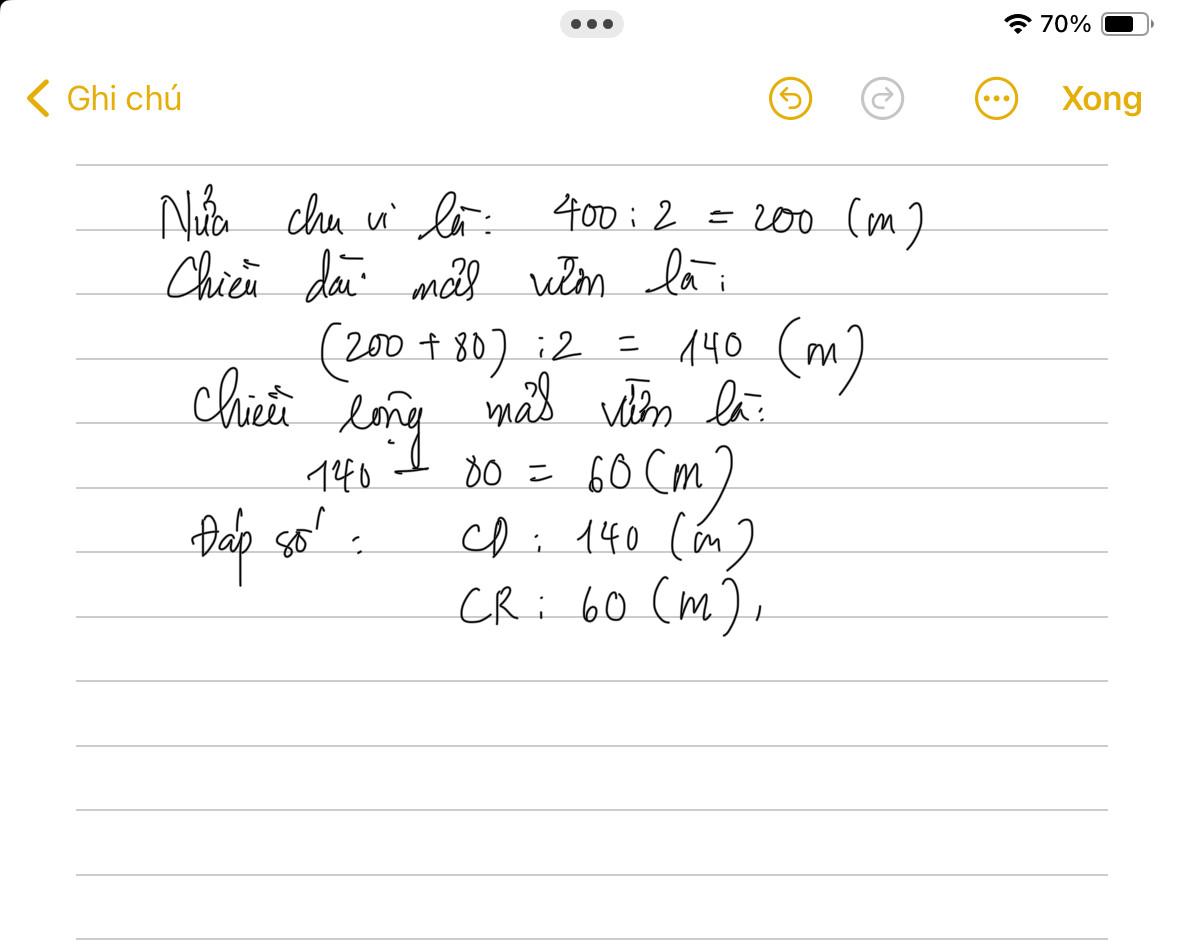 70%
Ghi chú
Xong
Nửa chu vi là: 400 : 2 = 200 (m)
Chiều dài mảnh vườn là:
(200 + 80) : 2 = 140 (m)
Chiều rộng mảnh vườn là:
140 - 80 = 60 (m)
Đáp số : CD : 140 (m)
CR : 60 (m),